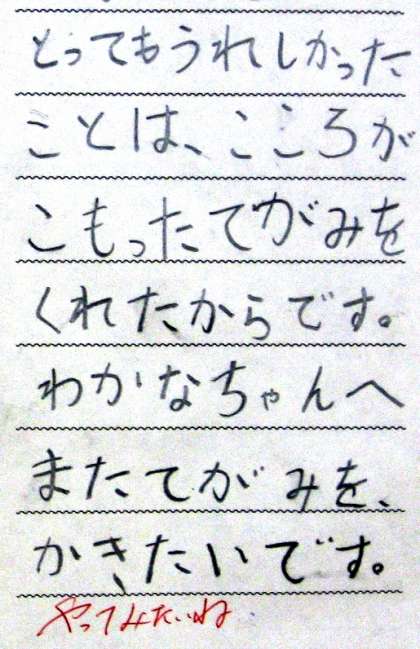 とってもうれしかった
ことは、こころが
こもったてがみを
くれたからです。
わかなちゃんへ
またてがみを、
かきたいです。
やってみたいね